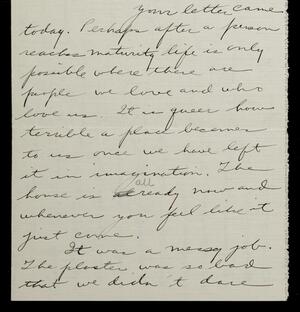 your letter came
today. Perhaps after a person
reaches maturity life is only
possible where there are
people we love and who
love us. It is queer how
terrible a place becomes
to us once we have left
it in imagination. The
house is all ready now and
whenever you feel like it
just come.
It was a messy job.
The plaster was so bad
that we didn't dare